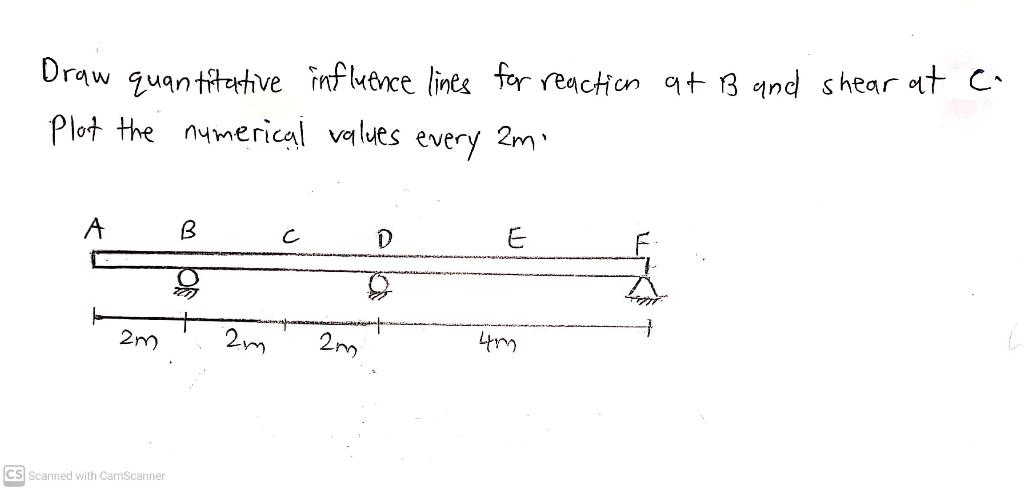 Draw quantitative influence lines for reaction at B and shear at C.
Plot the numerical values every 2m.
A B C D E F
2m 2m 2m 4m
CS Scanned with CamScanner